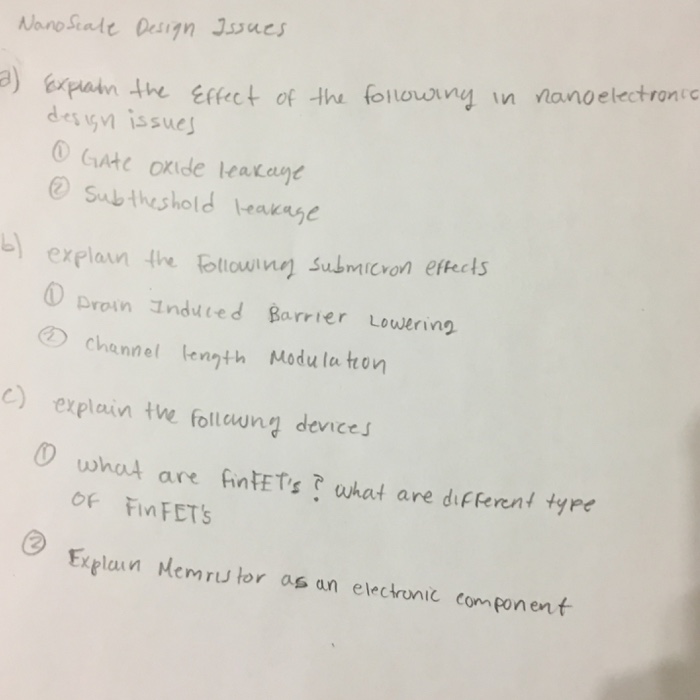 NanoScale Design Issues
a) Explain the Effect of the following in nanoelectronic
design issues
① GAte oxide leakage
② Subtheshold leakage
b) explain the Following Submicron effects
① Drain Induced Barrier Lowering
② Channel length Modulation
c) explain the following devices
① what are finFET's? what are different type
OF FinFET's
② Explain Memristor as an electronic component